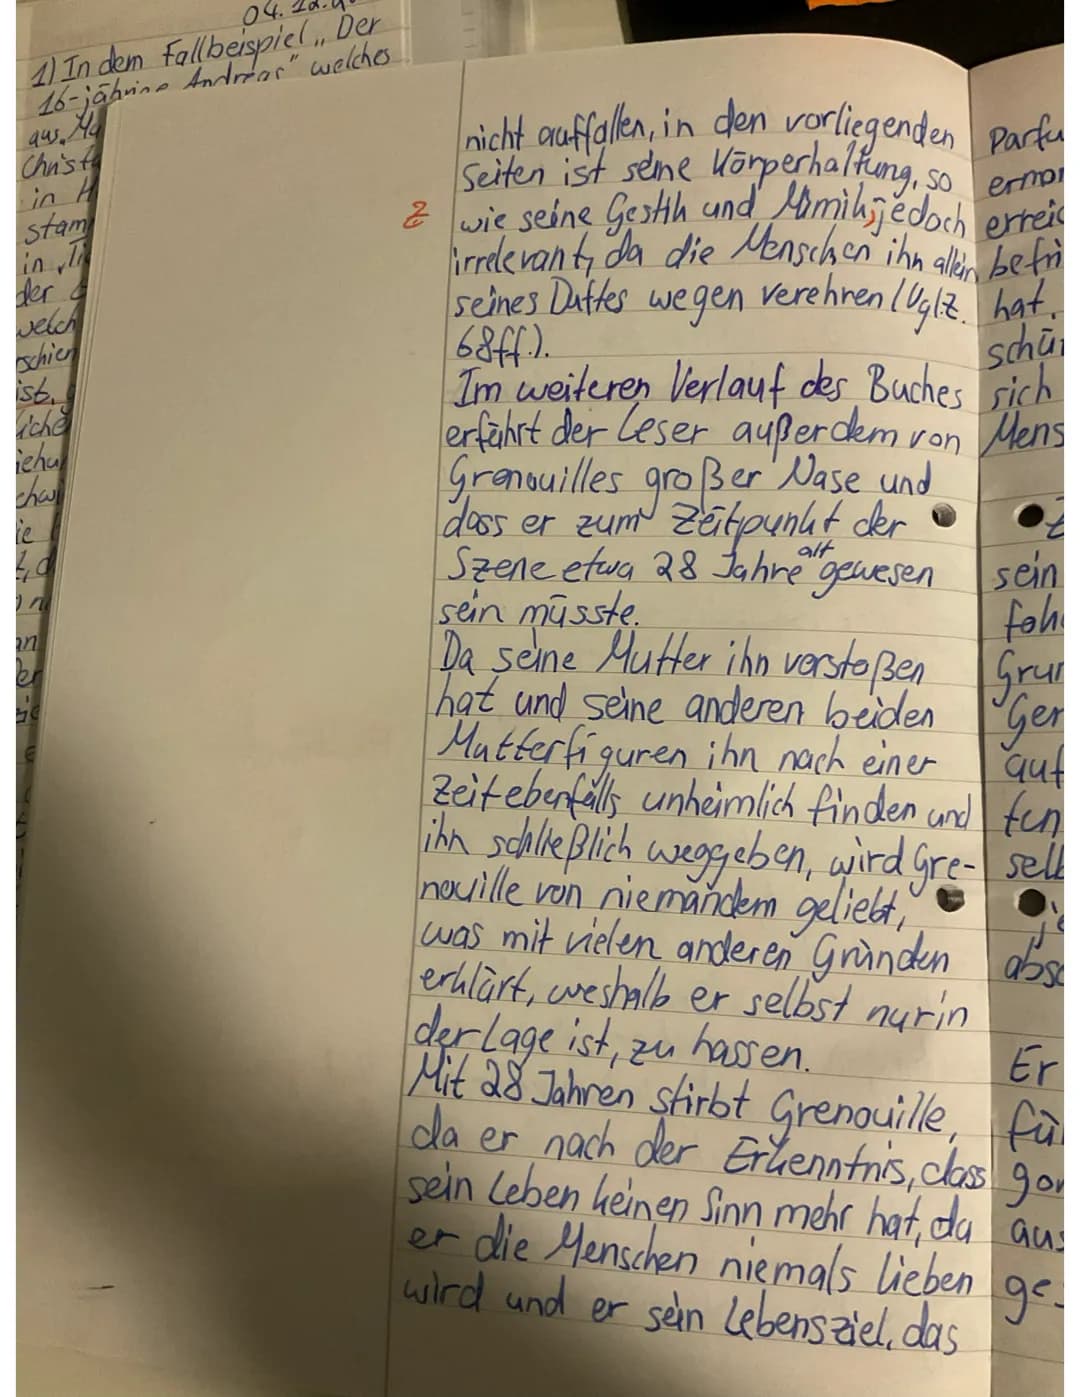 04.12.
1) In dem Fallbeispiel „Der
16-jährige Andreas" welches
aus
in
stam
in
der
welch
schien
ist,
nicht auffallen, in den vorliegenden
Seiten ist seine Körperhaltung, so
Z
wie seine Gestik und Mimik, jedoch
irrelevant, da die Menschen ihn allein
seines Duftes wegen verehren (Vgl. Z.
68ff.).
Im weiteren Verlauf des Buches
erfährt der Leser außerdem von
Grenouilles großer Nase und
dass er zum Zeitpunkt der
Szene etwa 28 Jahre alt gewesen
sein müsste.
Da seine Mutter ihn verstoßen
hat und seine anderen beiden
Mutterfiguren ihn nach einer
Zeit ebenfalls unheimlich finden und
ihn schließlich weggeben, wird Gre-
nouille von niemandem geliebt,
was mit vielen anderen Gründen
erklärt, weshalb er selbst nur in
der Lage ist, zu hassen.
Mit 28 Jahren stirbt Grenouille,
da er nach der Erkenntnis, dass
sein Leben keinen Sinn mehr hat, da
er die Menschen niemals lieben
wird und er sein Lebensziel, das
Parfu
ermor
erreic
befri
hat.
schü
sich
Mens
sein
Grun
Ger
auf
ten
selb
abso
Er
für
aus
ge